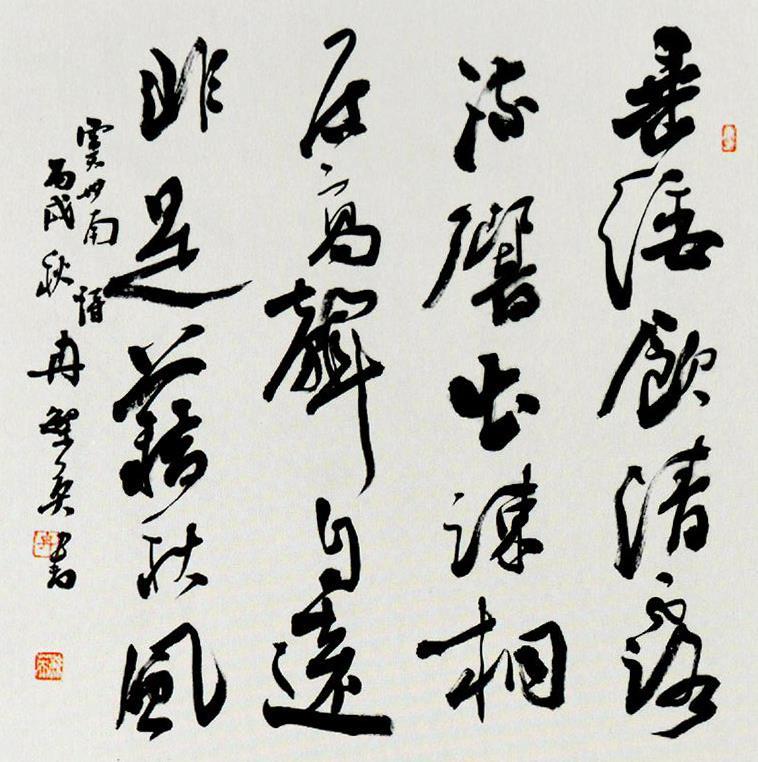 垂緌飲清露
流響出疎桐
居高聲自遠
非是藉秋風
虞世南
丙戌秋 冉繁英書